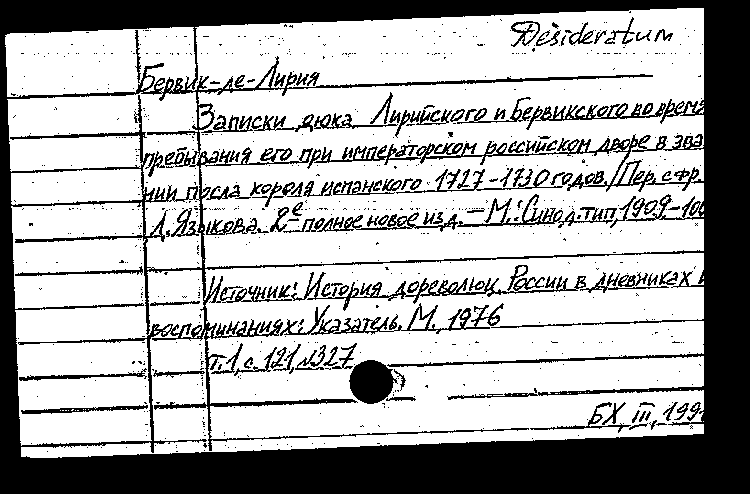 Desideratum
Бервик-де-Лирия
Записки дюка Лирийского и Бервикского во время
пребывания его при императорском российском дворе в зва
нии посла короля испанского 1727-1730 годов. / Пер. с фр.
Д. Языкова. 2е полное новое изд. - М.: Синод. тип, 1909. - 100
Источник: История дореволюц. России в дневниках и
воспоминаниях: Указатель. М., 1976
т. 1, с. 121, №327
БХ, III, 199